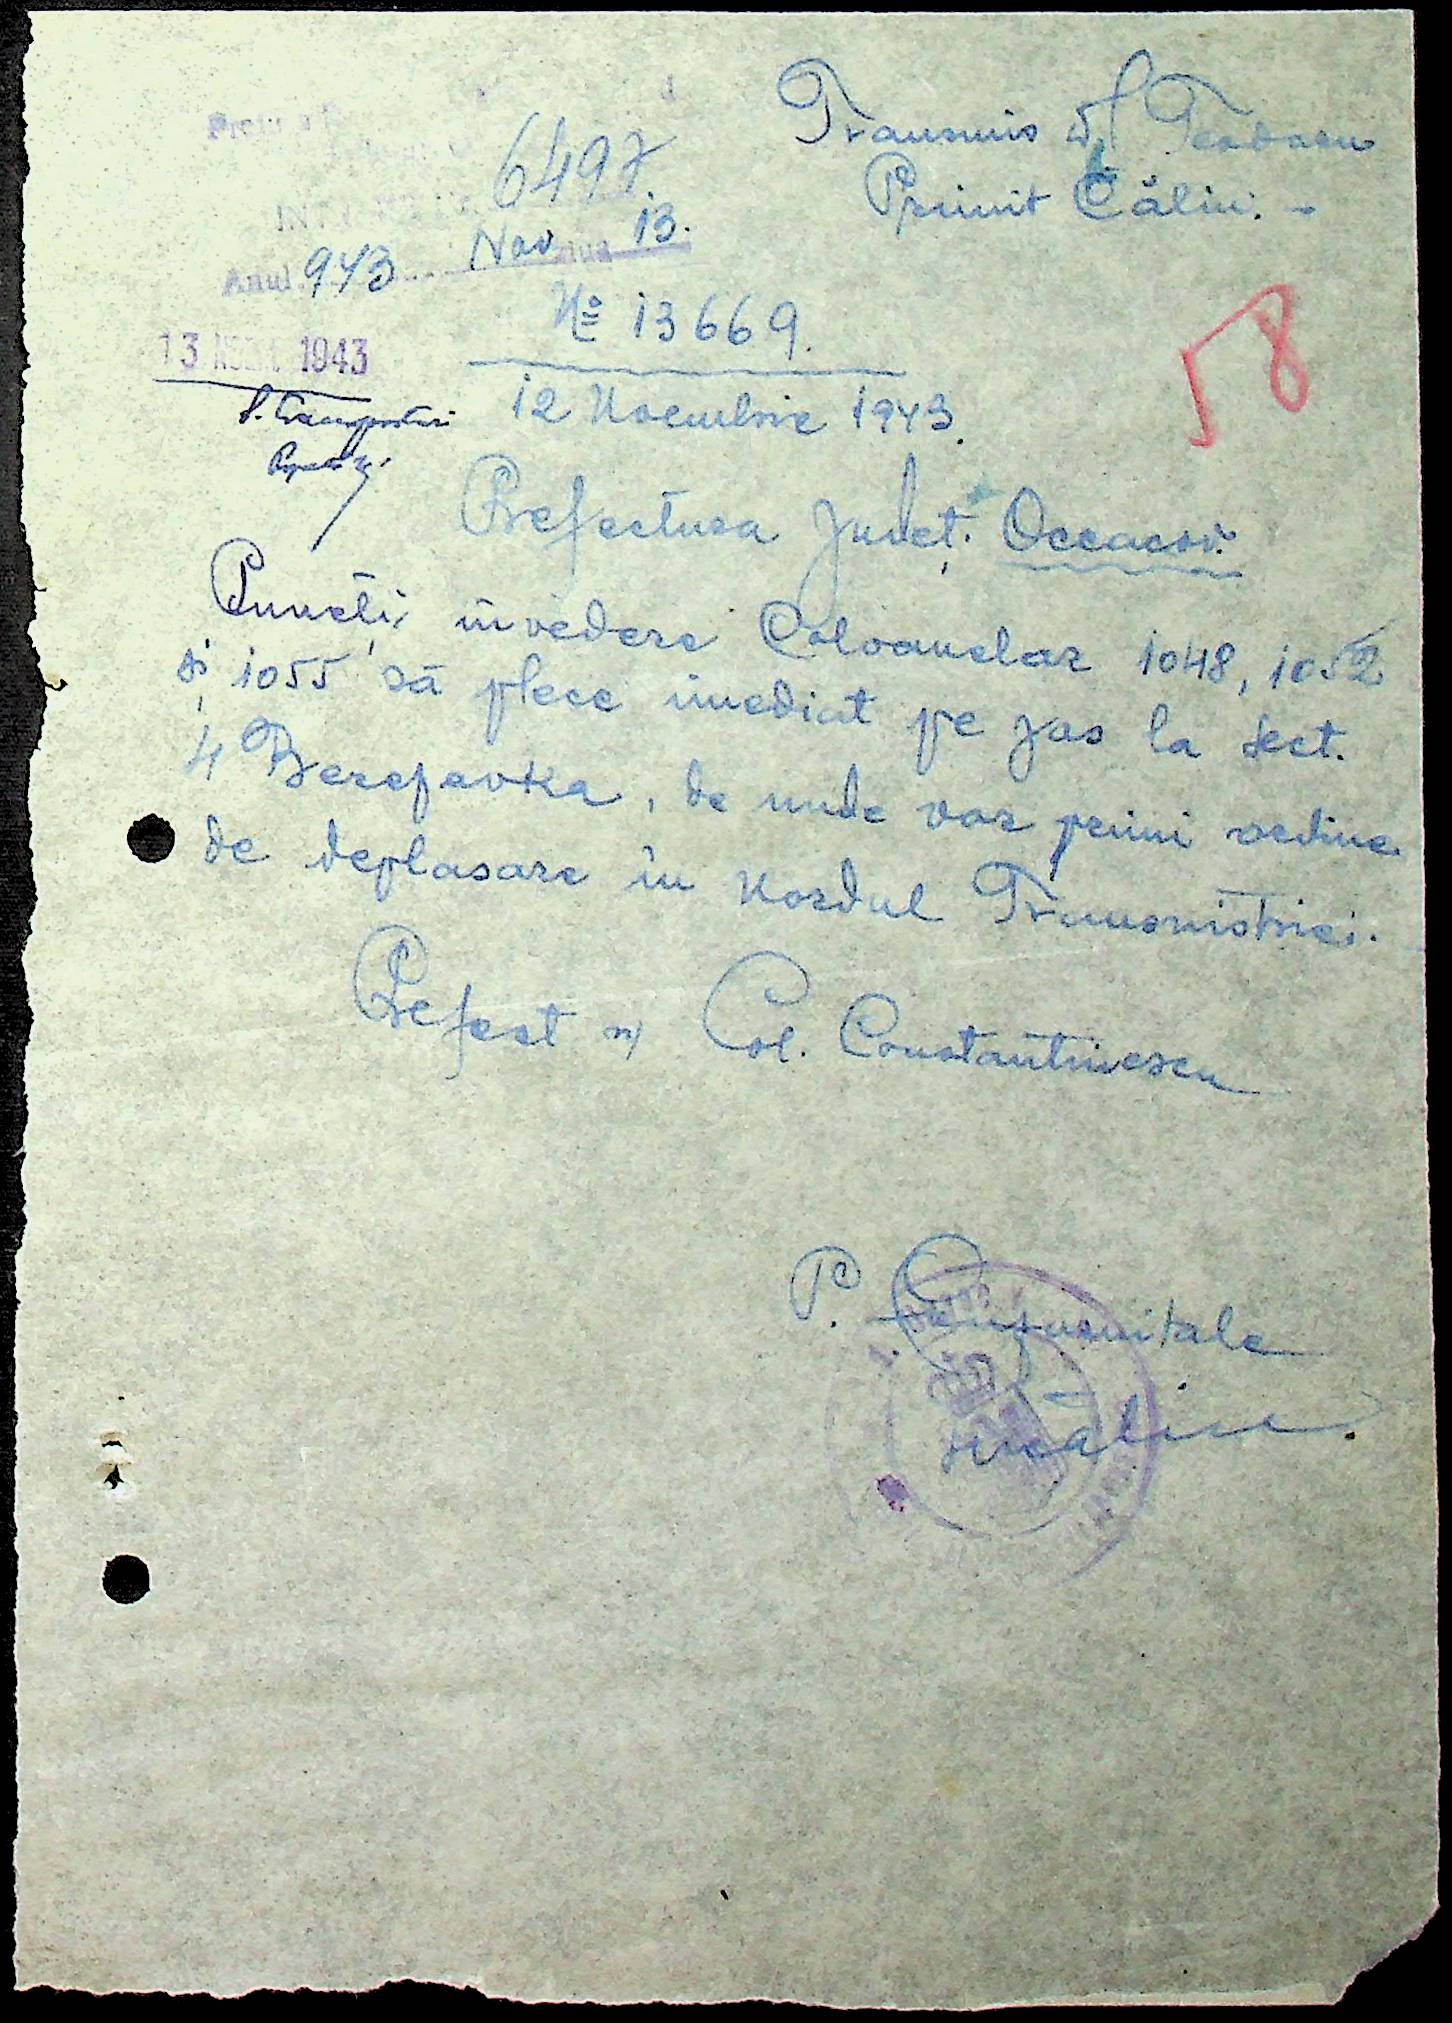 Transmis Teodoru
Primit Călin. -
6497
INTRARE
Anul 943 Nov ziua 13.
№ 13669.
13 NOEM. 1943
58
S. Transporturi
12 Noembrie 1943.
Prefectura Județ. Oceacov
Puneți în vedere Coloanelor 1048, 1052
și 1055 să plece imediat pe jos la sect.
4 Berezovka, de unde vor primi ordine
de deplasare în Nordul Transnistriei.
Prefect Col. Constantinescu
P. Conformitate
Călin